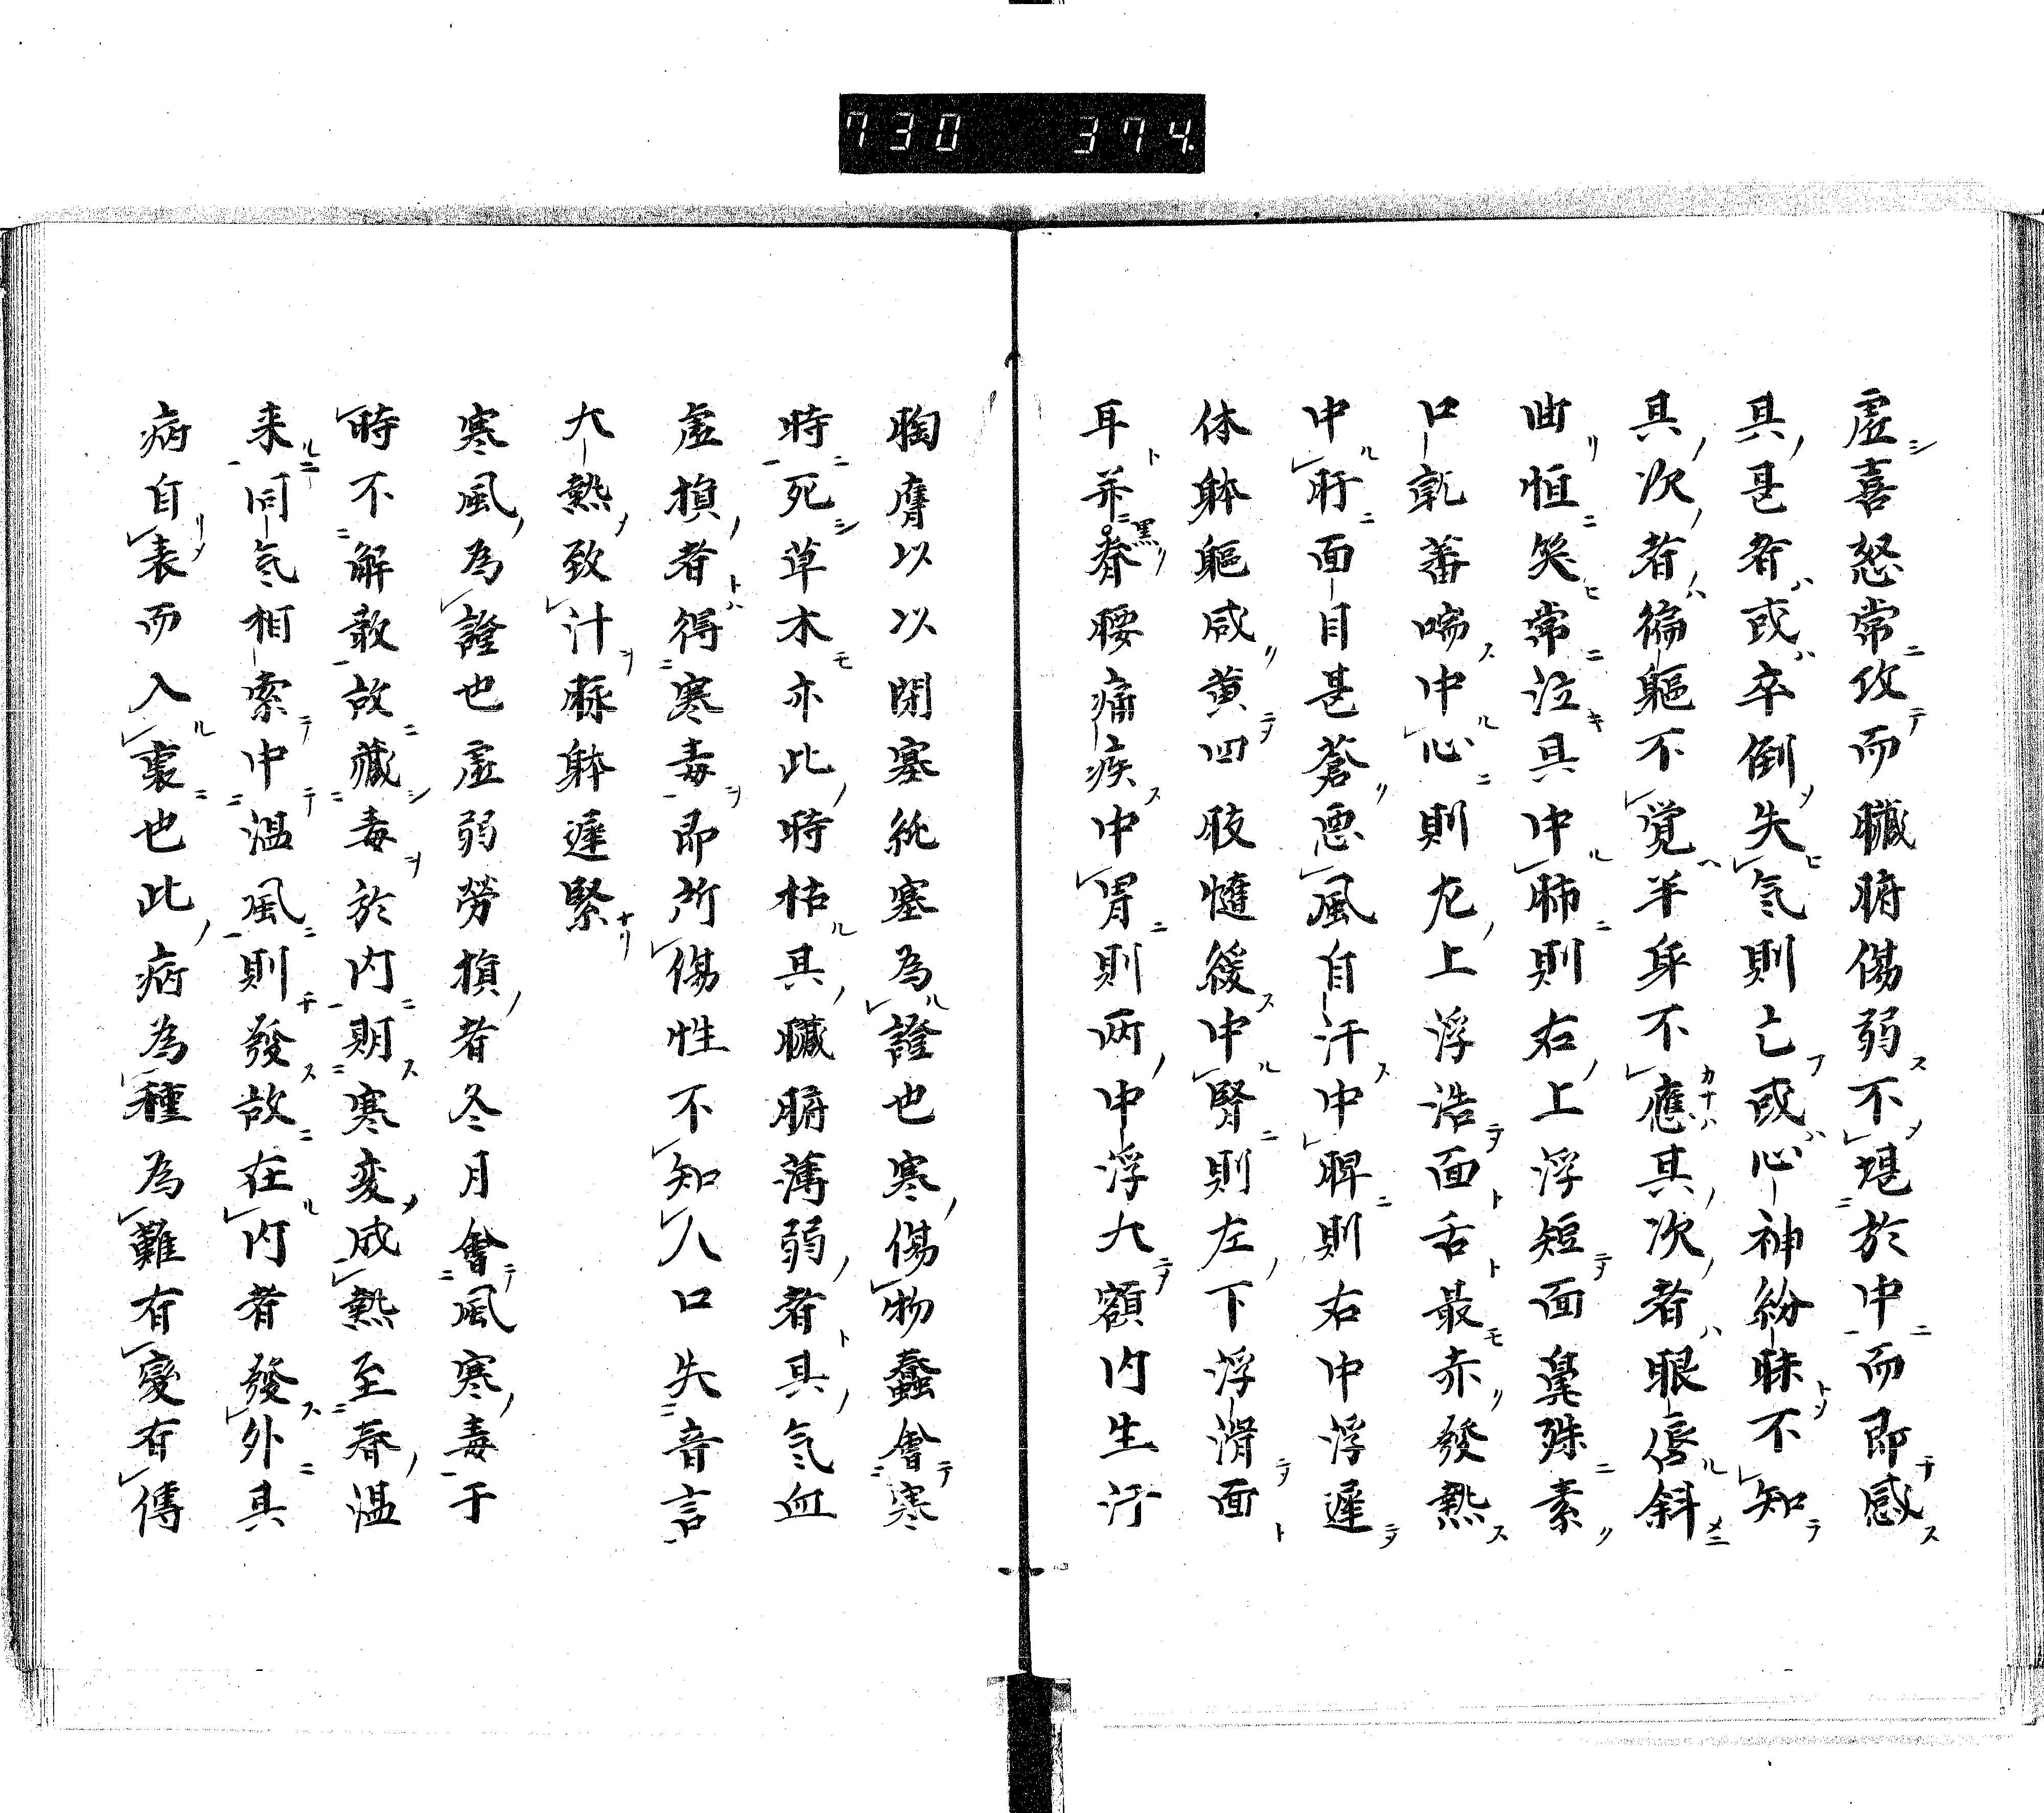 730 374.
虚喜怒常攻而臓腑傷弱不堪於中而即感
具甚者或卒倒失気則亡或心神紛昧不知
具次者徧軀不覚半身不應其次者眼唇斜
曲恒笑常泣具中肺則右上浮短面鼻殊素
口乾蕃喘中心則尤上浮浩面舌最赤發熱
中肝面目甚蒼悪風自汗中脾則右中浮遲
休躰軀咸黄四肢惰緩中腎則左下浮滑面
耳并黒脊腰痛疾中胃則两中浮大額内生汗
胸膚以以閉塞純塞為證也寒傷物蠢會寒
時死草木亦此時枯具臓腑薄弱者具気血
虚損者得寒毒即所傷性不知人口失音言
大熱致汁躰遲緊
寒風為證也虚弱勞損者冬月會風寒毒于
時不解散故藏毒於内則寒变成熱至春温
来同気相索中温風則發故在内者發外具
病自表而入裏也此病為種為難有變有傳